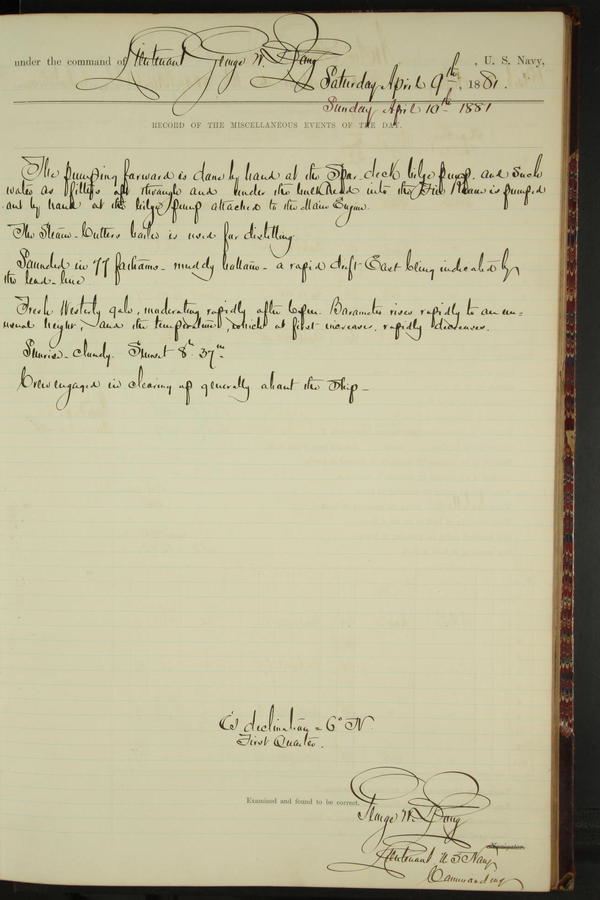 under the command of Lieutenant George W. De Long , U. S. Navy,
Saturday April 9th , 1881.
Sunday April 10th 1881
RECORD OF THE MISCELLANEOUS EVENTS OF THE DAY.
The pumping forward is done by hand at the Spar-deck bilge pump, and such
water as filters aft through and under the bulkhead into the Fire Room is pumped
out by hand at the bilge pump attached to the Main Engine.
The Steam-Cutters boiler is used for distilling.
Sounded in 77 fathoms - muddy bottom - a rapid drift East being indicated by
the lead-line
Fresh Westerly gale, moderating rapidly after 6 p.m. Barometer rises rapidly to an un=
usual height, and the temperature, which at first increases, rapidly decreases.
Sunrise - cloudy. Sunset 8h 37m
Crew engaged in clearing up generally about the Ship -
declination = 6° N
First Quarter.
Examined and found to be correct.
George W. De Long
Navigator.
Lieutenant U S Navy
Commanding